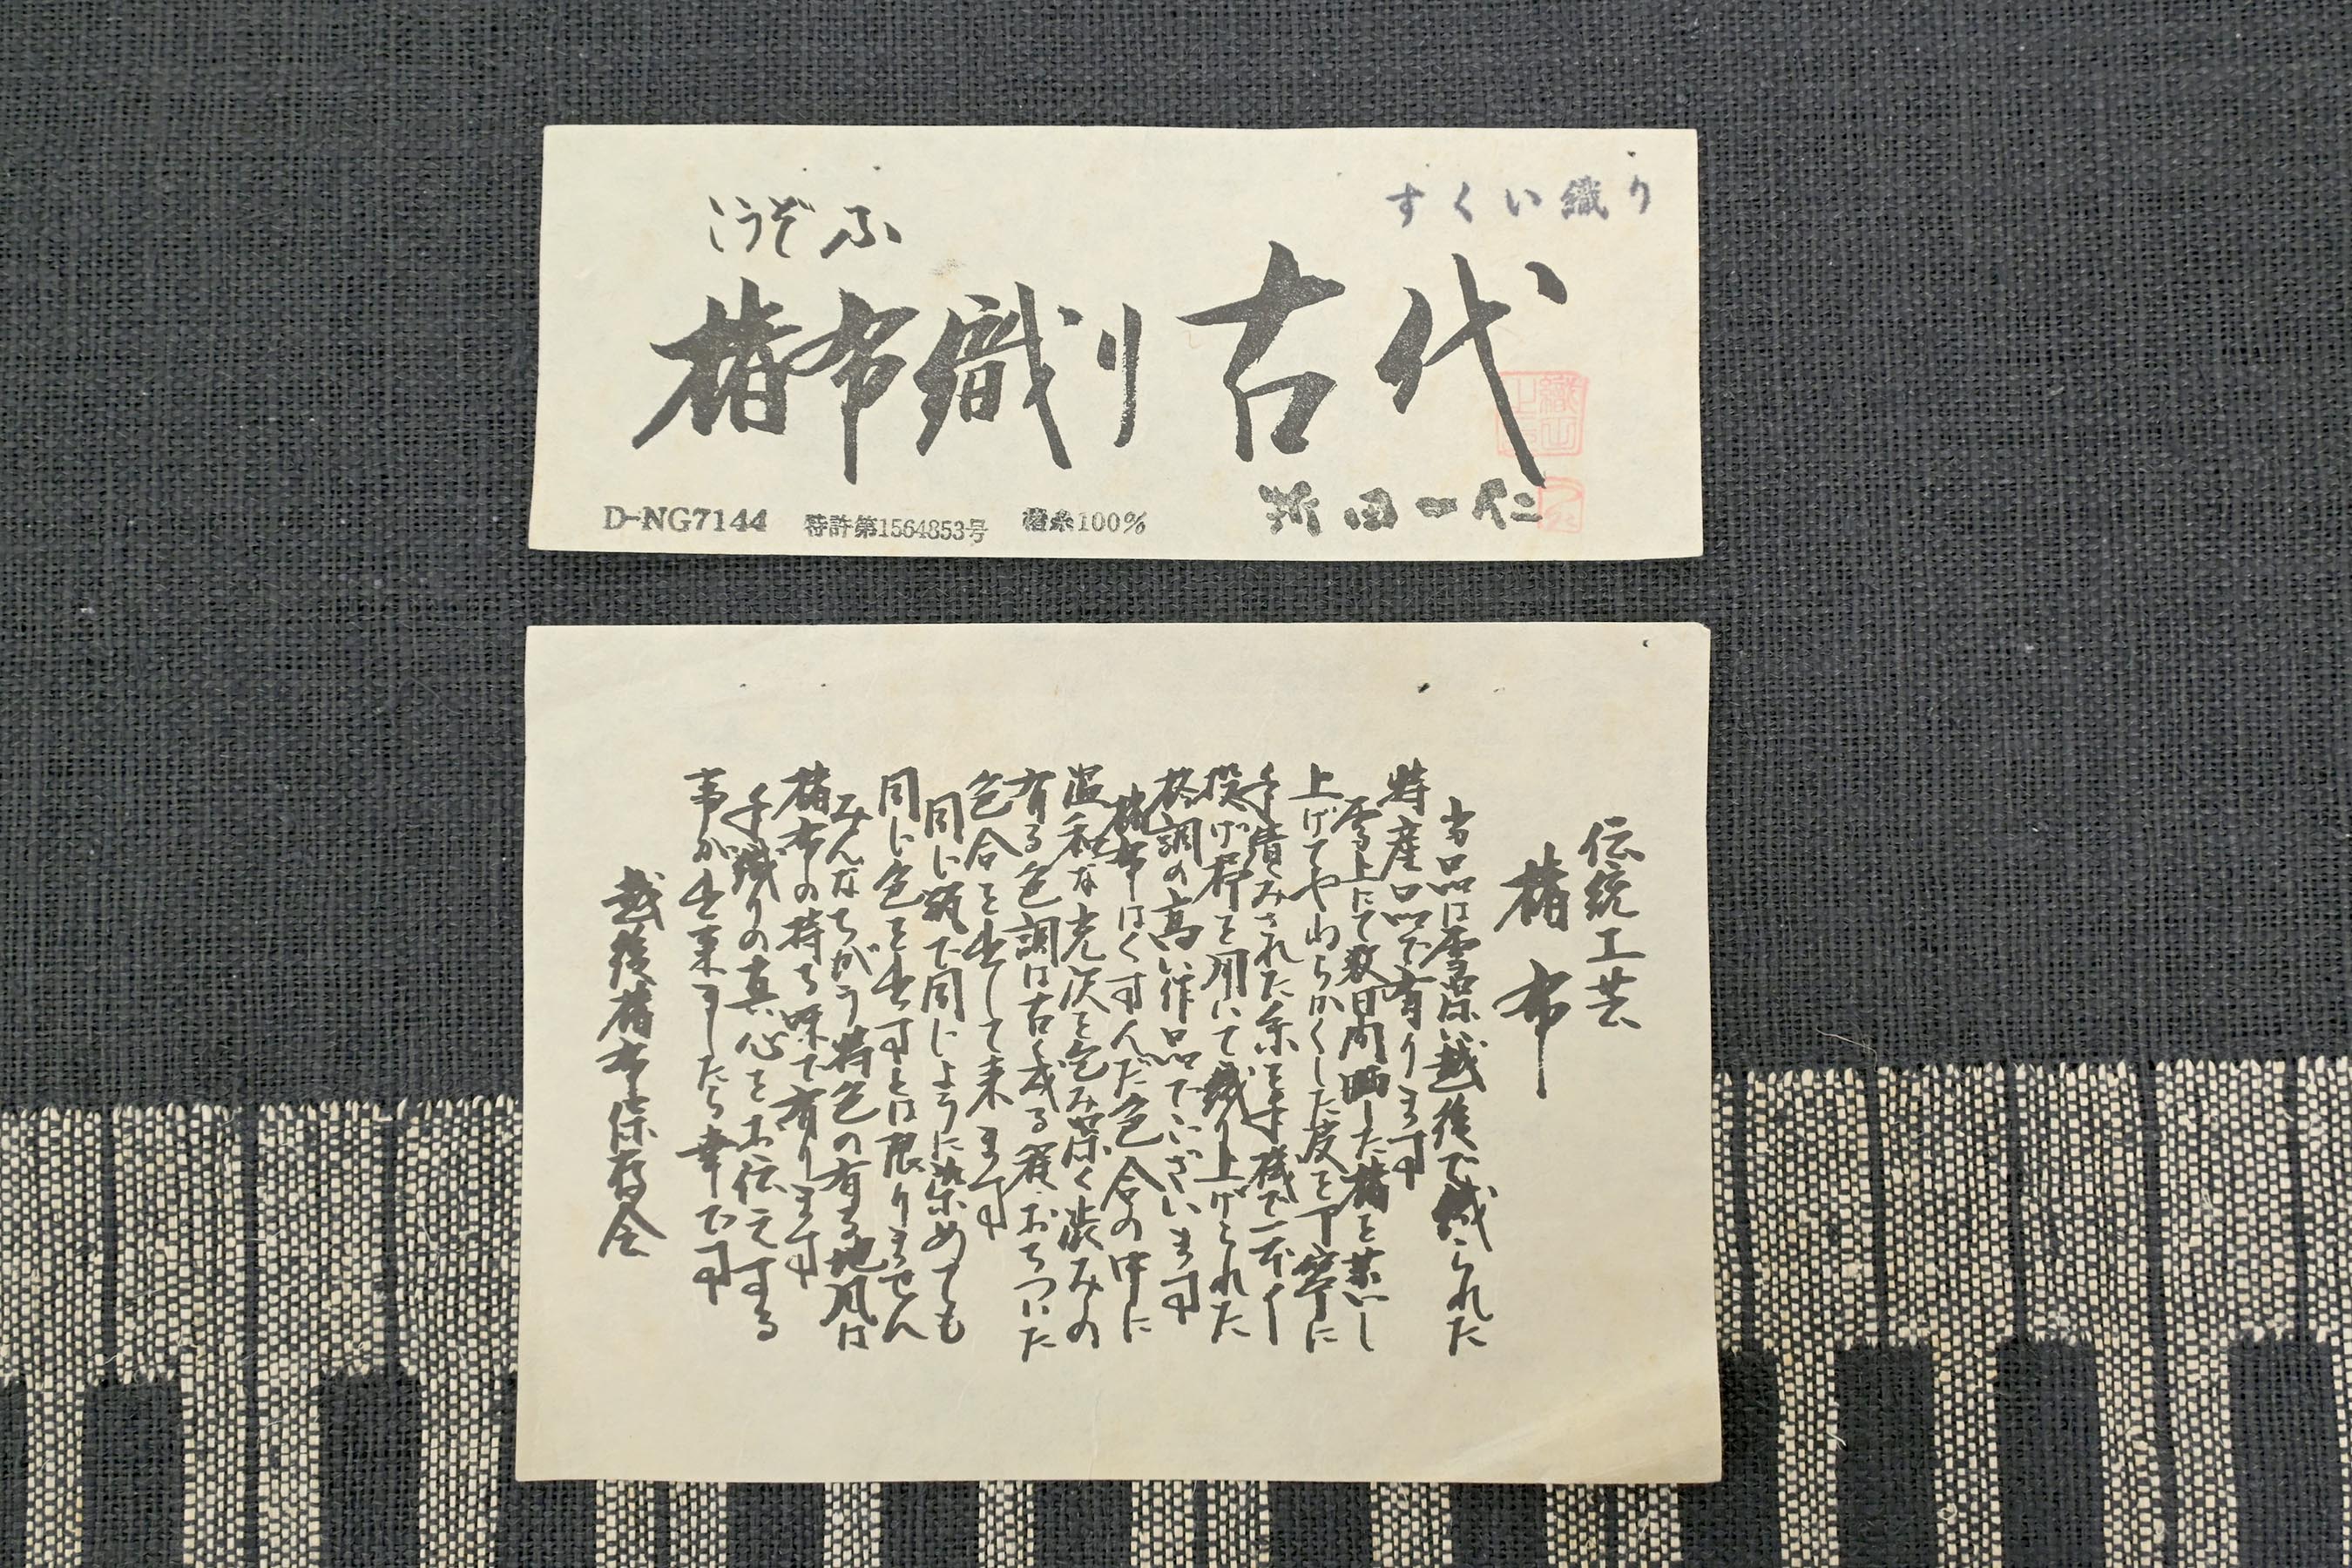 すくい織り
こうぞふ
楮布織り 古代
D-NG7144 特許第1564853号 楮糸100%
伝統工芸
楮布
当品は雪深い越後で織られた
特産品で有ります
雪上にて数日間晒した楮を蒸し
上げてやわらかくした皮を丁寧に
手績みされた糸を手機で一本一
投げ杼を用いて織り上げられた
格調の高い作品でございます
楮布はくすんだ色合の中に
温和な光沢を包み深く渋みの
有る色調は古く成る程おちついた
色合を出して来ます
同じ瓶で同じように染めても
同じ色を出すとは限りません
みんなちがう特色の有る地風は
楮布の持る味で有ります
手織りの真心をお伝えする
事が出来ましたら幸です
越後楮布保存会